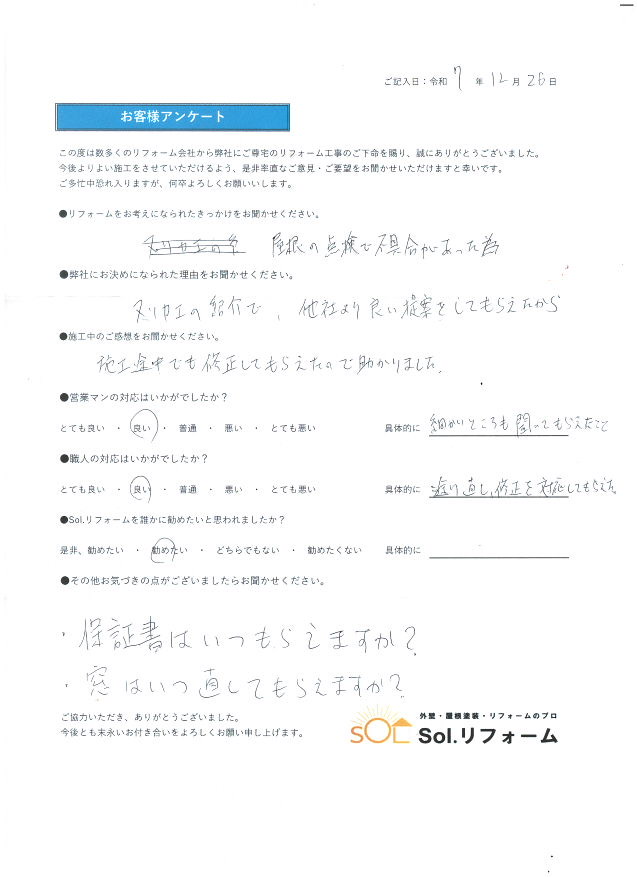 ご記入日：令和 7 年 12 月 26 日
お客様アンケート
この度は数多くのリフォーム会社から弊社にご尊宅のリフォーム工事のご下命を賜り、誠にありがとうございました。
今後よりよい施工をさせていただけるよう、是非率直なご意見・ご要望をお聞かせいただけますと幸いです。
ご多忙中恐れ入りますが、何卒よろしくお願いいします。
●リフォームをお考えになられたきっかけをお聞かせください。
ヌリカエの 屋根の点検で不具合があった為
●弊社にお決めになられた理由をお聞かせください。
ヌリカエの紹介で、他社より良い提案をしてもらえたから
●施工中のご感想をお聞かせください。
施工途中でも修正してもらえたので助かりました。
●営業マンの対応はいかがでしたか？
とても良い ・ 良い ・ 普通 ・ 悪い ・ とても悪い 具体的に 細かいところも聞いてもらえたこと
●職人の対応はいかがでしたか？
とても良い ・ 良い ・ 普通 ・ 悪い ・ とても悪い 具体的に 塗り直し、修正を対応してもらえた
●Sol.リフォームを誰かに勧めたいと思われましたか？
是非、勧めたい ・ 勧めたい ・ どちらでもない ・ 勧めたくない 具体的に
●その他お気づきの点がございましたらお聞かせください。
・保証書はいつもらえますか？
・窓はいつ直してもらえますか？
ご協力いただき、ありがとうございました。
今後とも末永いお付き合いをよろしくお願い申し上げます。
外壁・屋根塗装・リフォームのプロ
SOL Sol.リフォーム